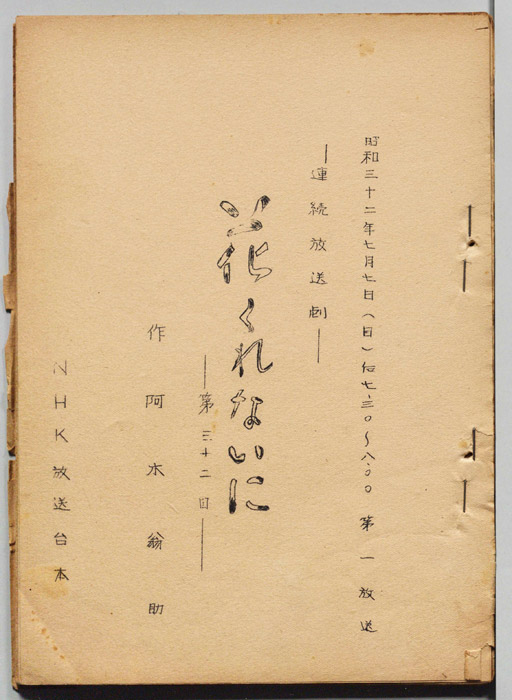 昭和三十二年七月七日（日）后七・三〇〜八・〇〇 第一放送
―連続放送劇―
花くれないに
―第三十二回―
作 阿木翁助
NHK放送台本